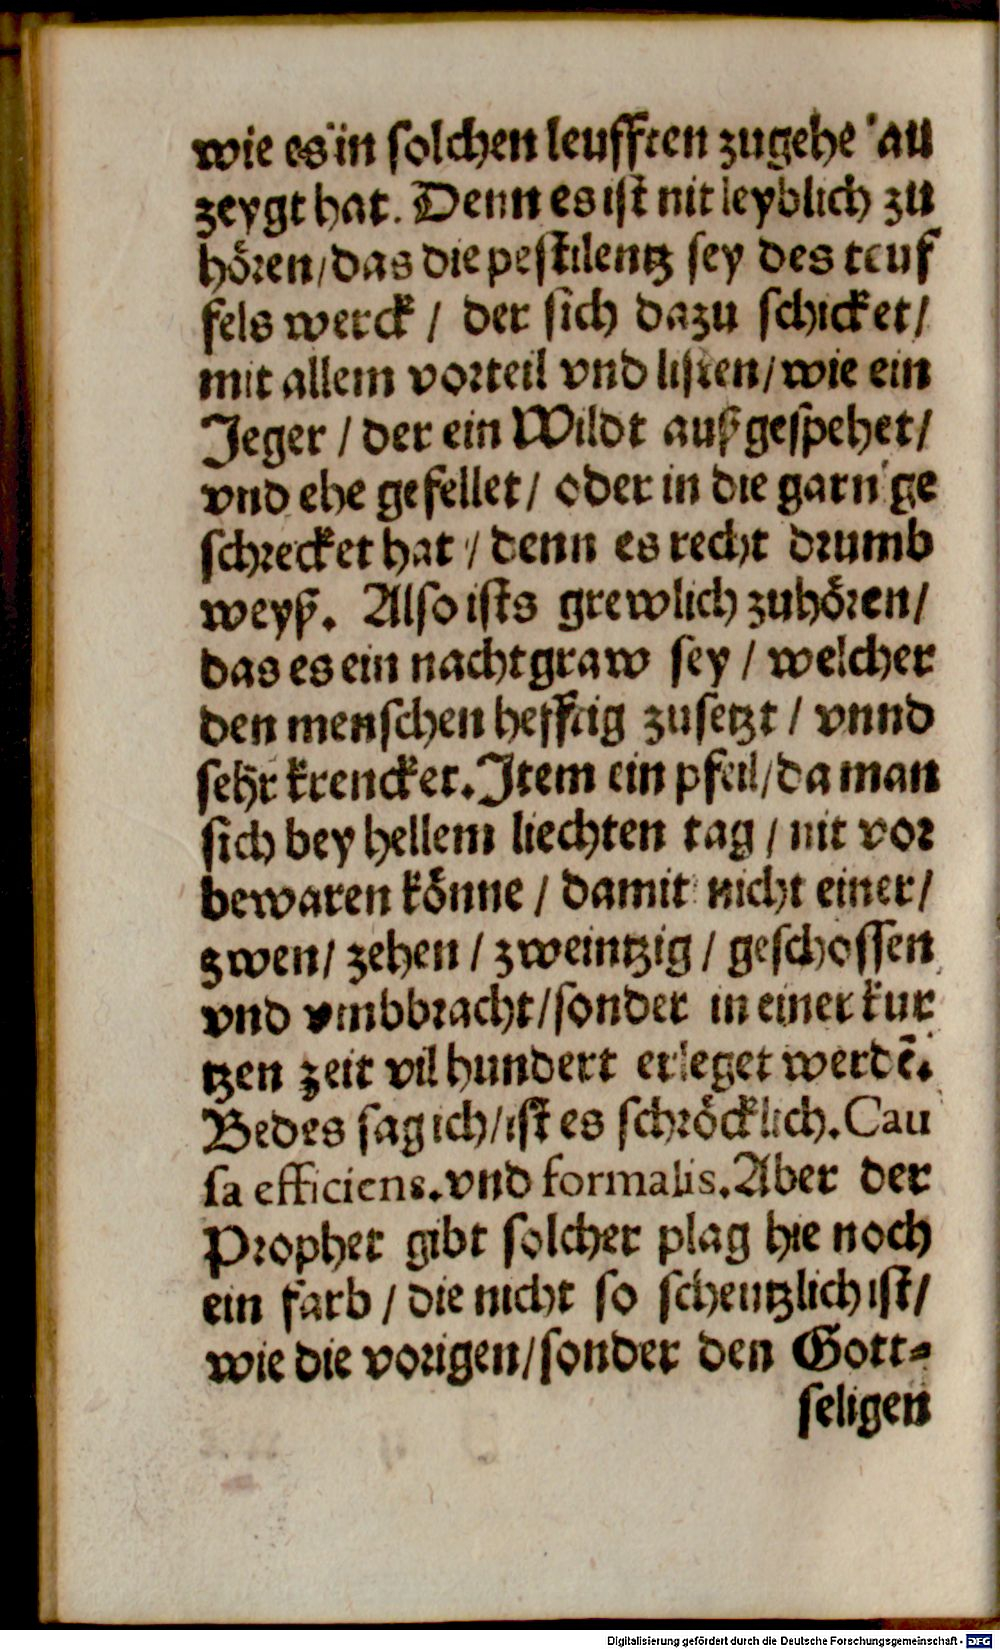 wie es in solchen leufften zugehe au
zeygt hat. Denn es ist nit leyblich zu
hören/ das die pestilentz sey des teuf
fels werck / der sich dazu schicket/
mit allem vorteil vnd listen/ wie ein
Jeger / der ein Wildt außgespehet/
vnd ehe gefellet/ oder in die garn ge
schrecket hat / denn es recht drumb
weyß. Also ists grewlich zuhören/
das es ein nachtgraw sey / welcher
den menschen hefftig zusetzt / vnnd
sehr krencket. Item ein pfeil/ da man
sich bey hellem liechten tag / nit vor
bewaren könne / damit nicht einer/
zwen/ zehen / zweintzig / geschossen
vnd vmbbracht/ sonder in einer kur
tzen zeit vil hundert erleget werdẽ.
Bedes sag ich/ ist es schröcklich. Cau
sa efficiens. vnd formalis. Aber der
Prophet gibt solcher plag hie noch
ein farb / die nicht so scheutzlich ist/
wie die vorigen/ sonder den Gott⸗
seligen
Digitalisierung gefördert durch die Deutsche Forschungsgemeinschaft - DFG